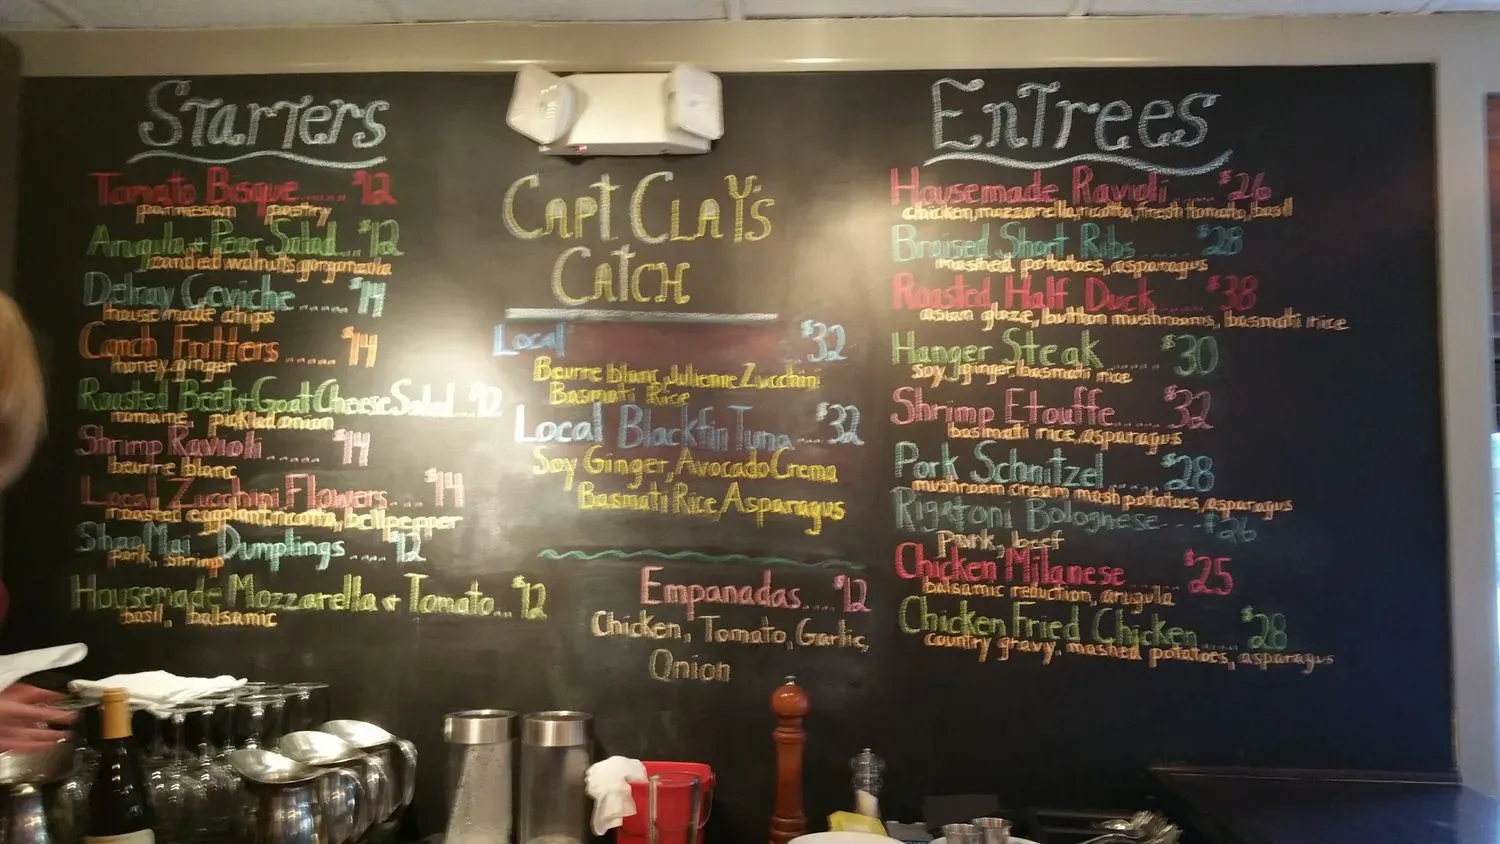 Starters
Tomato Bisque..... $12
parmesan pastry
Arugula + Pear Salad... $12
candied walnuts gorgonzola
Delray Ceviche ..... $14
house made chips
Conch Fritters ..... $14
honey ginger
Roasted Beet + Goat Cheese Salad ... $12
romaine, pickled onion
Shrimp Ravioli ...... $14
beurre blanc
Local Zucchini Flowers... $14
roasted eggplant, ricotta, bellpepper
Shao Mai Dumplings .... $12
pork, shrimp
Housemade Mozzarella + Tomato... $12
basil, balsamic
Capt Clay's
Catch
Local $32
Beurre blanc, Julienne Zucchini
Basmati Rice
Local Blackfin Tuna ... $32
Soy Ginger, Avocado Crema
Basmati Rice, Asparagus
Empanadas.... $12
Chicken, Tomato, Garlic,
Onion
Entrees
Housemade Ravioli .... $26
chicken, mozzarella, ricotta, fresh tomato, basil
Braised Short Ribs ...... $28
mashed potatoes, asparagus
Roasted Half Duck ..... $38
asian glaze, button mushrooms, basmati rice
Hanger Steak ...... $30
soy ginger, basmati rice
Shrimp Etouffe ..... $32
basmati rice, asparagus
Pork Schnitzel ...... $28
mushroom cream mash potatoes, asparagus
Rigatoni Bolognese ... $26
Pork, beef
Chicken Milanese ...... $25
balsamic reduction, arugula
Chicken Fried Chicken ..... $28
country gravy, mashed potatoes, asparagus